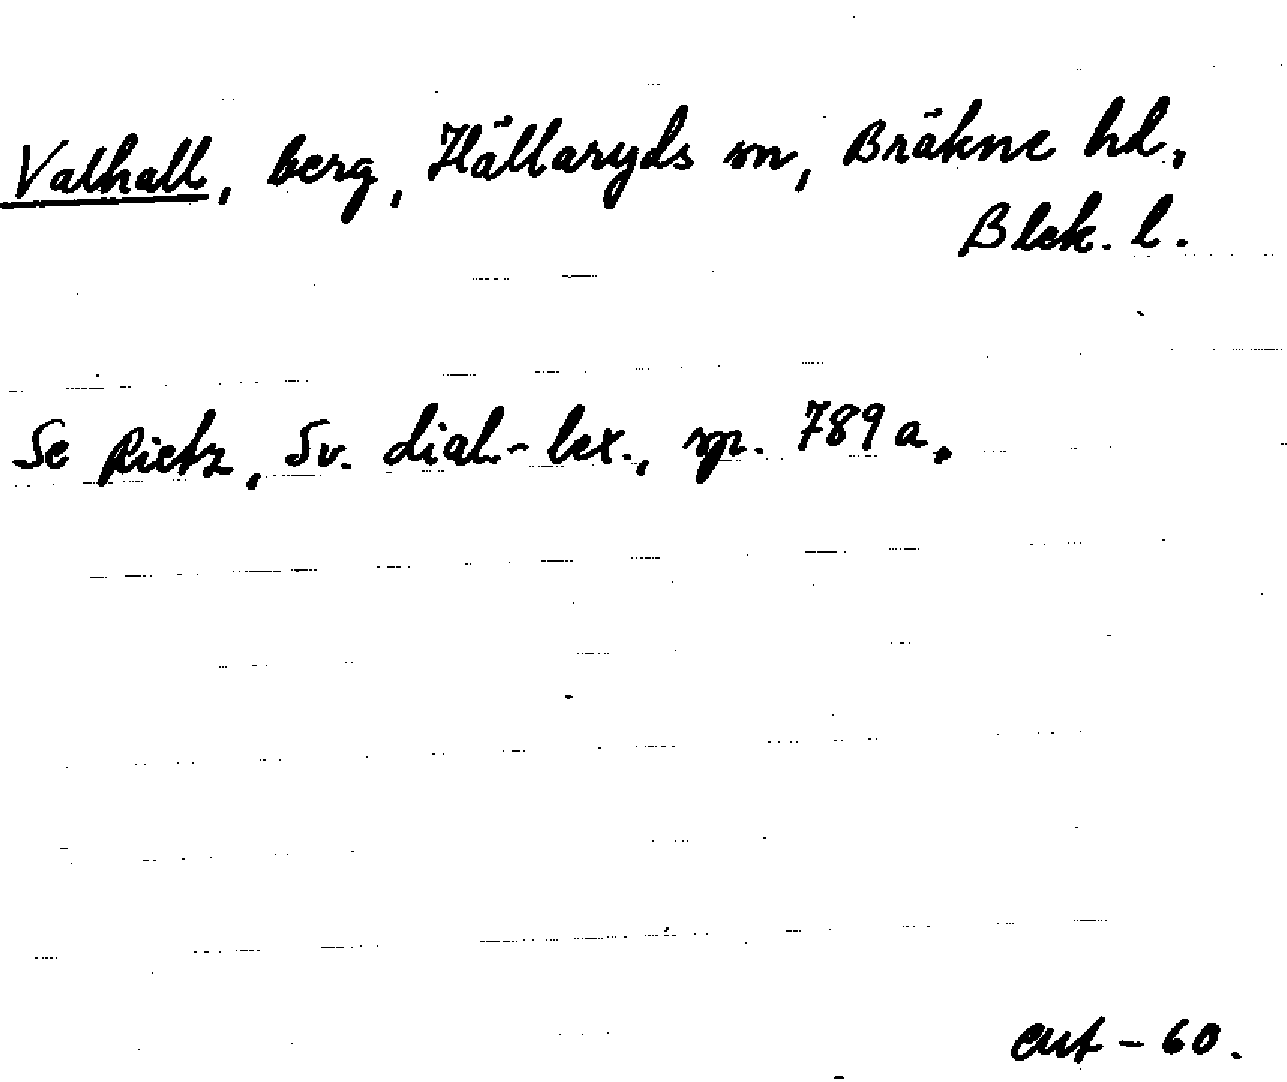 Valhall, berg, Hällaryds sn, Bräkne hd,
Blek. l.
Se Rietz, Sv. dial.-lex., sp. 789 a.
-60.